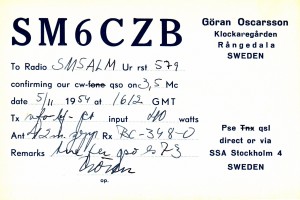 SM6CZB
Göran Oscarsson
Klockaregården
Rångedala
SWEDEN
To Radio SM5ALM Ur rst 579
confirming our cw-fone qso on 3,5 Mc
date 5/11 1954 at 1612 GMT
Tx input 40 watts
Ant 42 m zepp Rx BC-348-O
Remarks qso 73
Göran
op.
Pse Tnx qsl
direct or via
SSA Stockholm 4
SWEDEN